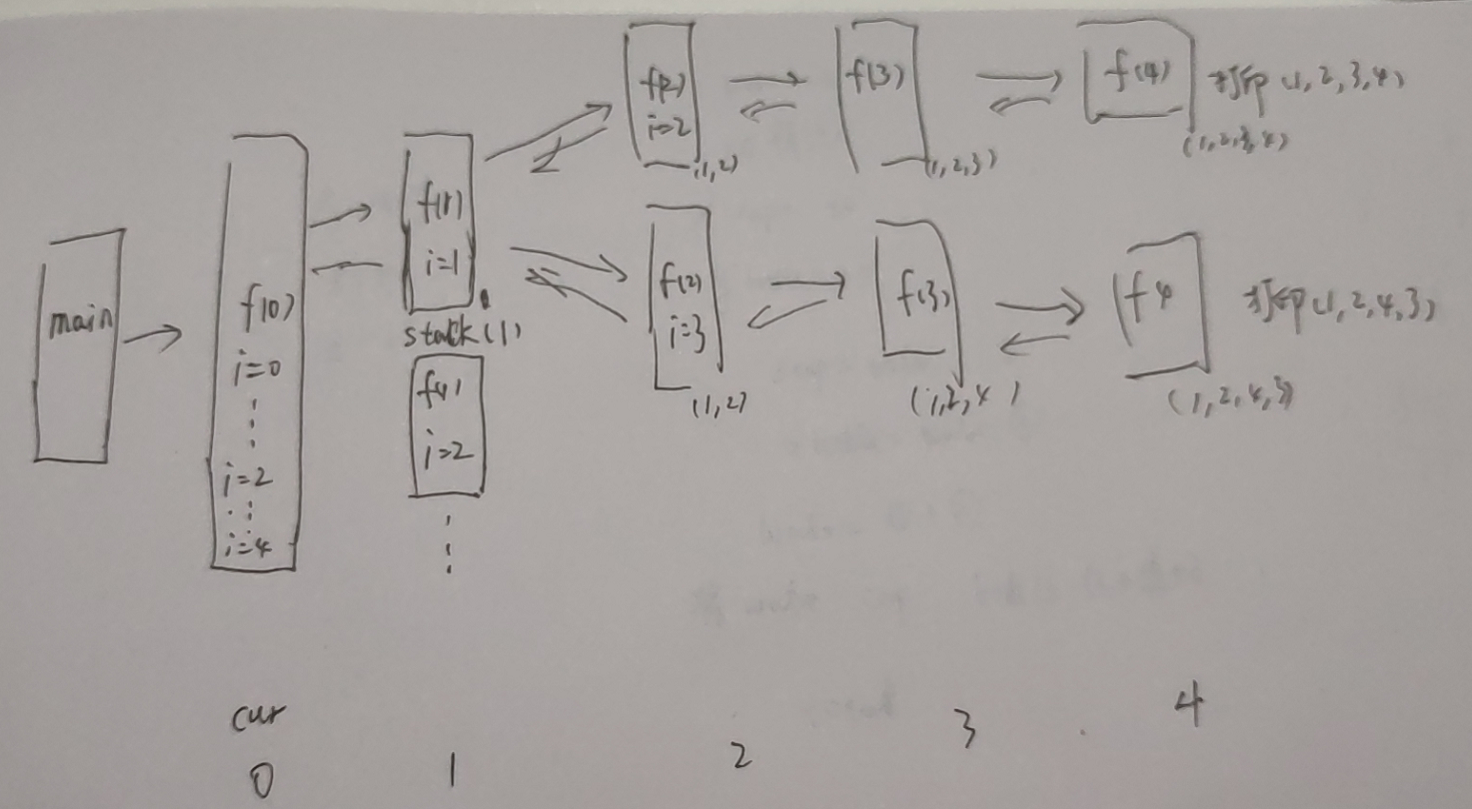 main
f(0)
i=0
i=2
i=4
f(1)
i=1
stack(1)
f(1)
i=2
f(2)
i=2
(1,2)
f(3)
(1,2,3)
f(4)
打印(1,2,3,4)
(1,2,3,4)
f(2)
i=3
(1,2)
f(3)
(1,2,4)
f4
打印(1,2,4,3)
(1,2,4,3)
cur
0 1 2 3 4